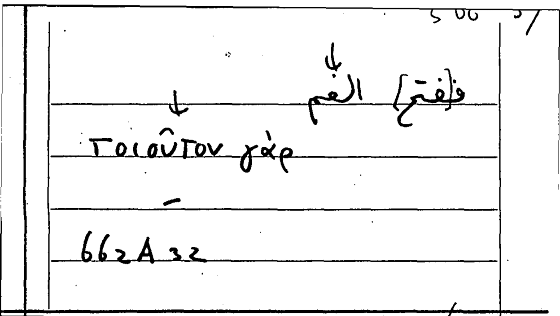 ↓
ف[فتح] الفم
↓
τοιοῦτον γὰρ
–
662A 32